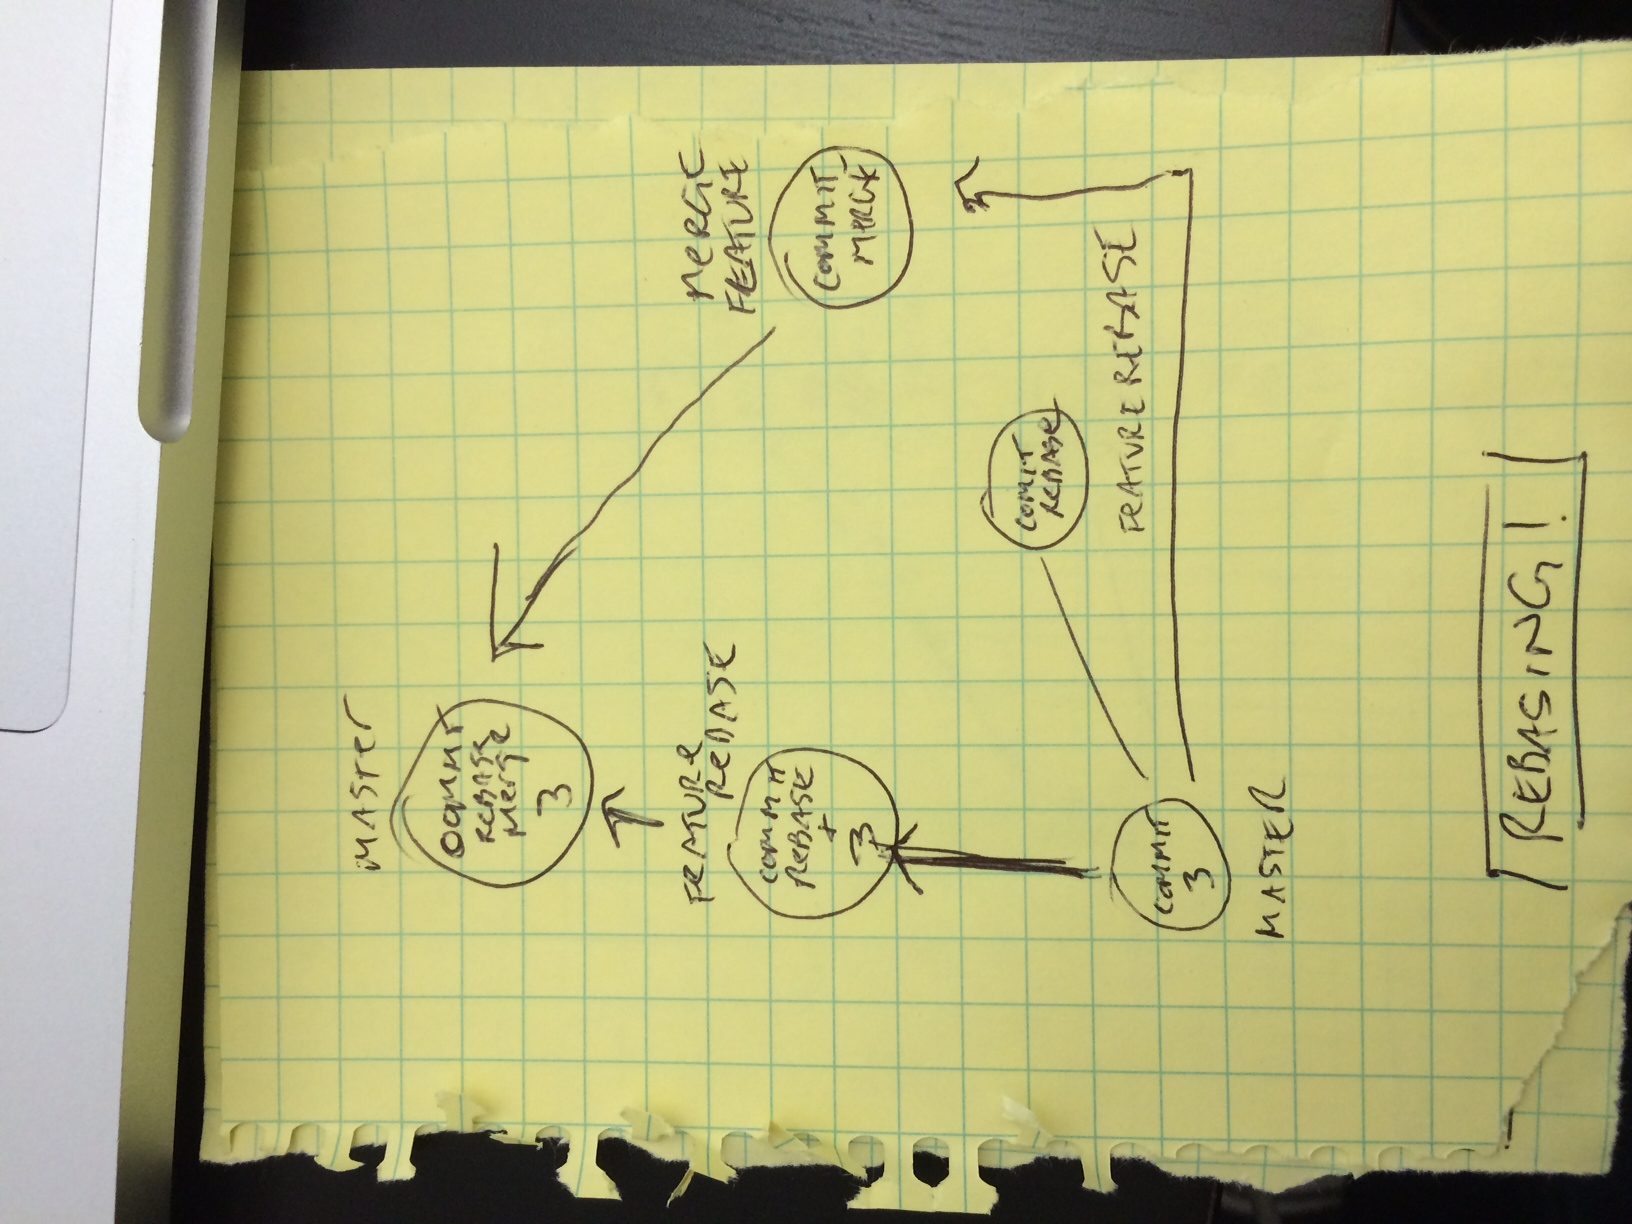 MASTER
COMMIT
REBASE
Merge
3
FEATURE
REBASE
COMMIT
REBASE
+
3
MERGE
FEATURE
COMMIT
MERGE
COMIT
REBASE
FEATURE REBASE
COMMIT
3
MASTER
REBASING!